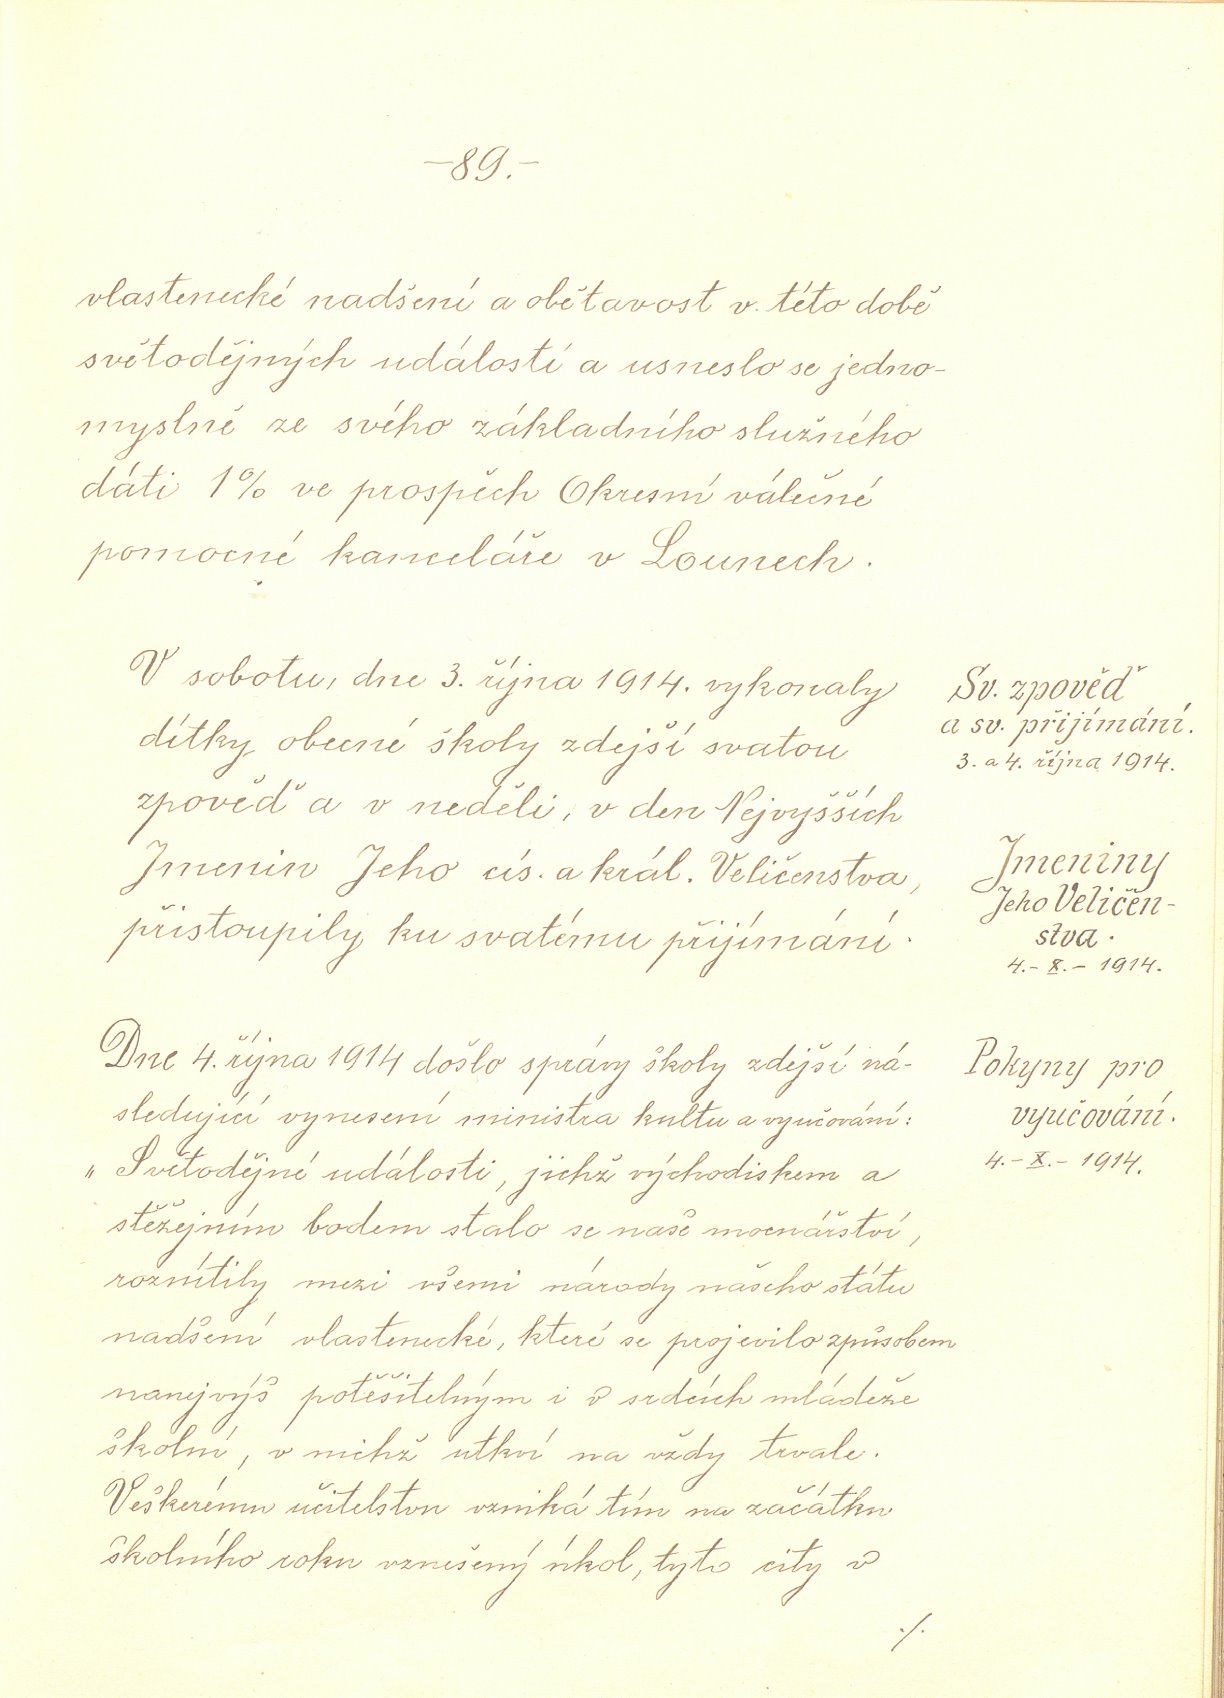 —89.—
vlastenecké nadšení a obětavost v této době
světodějných událostí a usneslo se jedno-
myslně ze svého základního služného
dáti 1% ve prospěch Okresní válečné
pomocné kanceláře v Lounech.
V sobotu, dne 3. října 1914. vykonaly
dítky obecné školy zdejší svatou
zpověď a v neděli, v den Nejvyšších
Jmenin Jeho cís. a král. Veličenstva,
přistoupily ku svatému přijímání.
Sv. zpověď
a sv. přijímání.
3. a 4. října 1914.
Jmeniny
Jeho Veličen-
stva.
4.- X.- 1914.
Dne 4. října 1914 došlo správy školy zdejší ná-
sledující vynesení ministra kultu a vyučování:
„Světodějné události, jichž východiskem a
stěžejním bodem stalo se naše mocnářství,
roznítily mezi všemi národy našeho státu
nadšení vlastenecké, které se projevilo způsobem
nanejvýš potěšitelným i v srdcích mládeže
školní, v nichž utkví na vždy trvale.
Veškerému učitelstvu vzniká tím na začátku
školního roku vznešený úkol, tyto city v
Pokyny pro
vyučování.
4.- X.- 1914.
./.